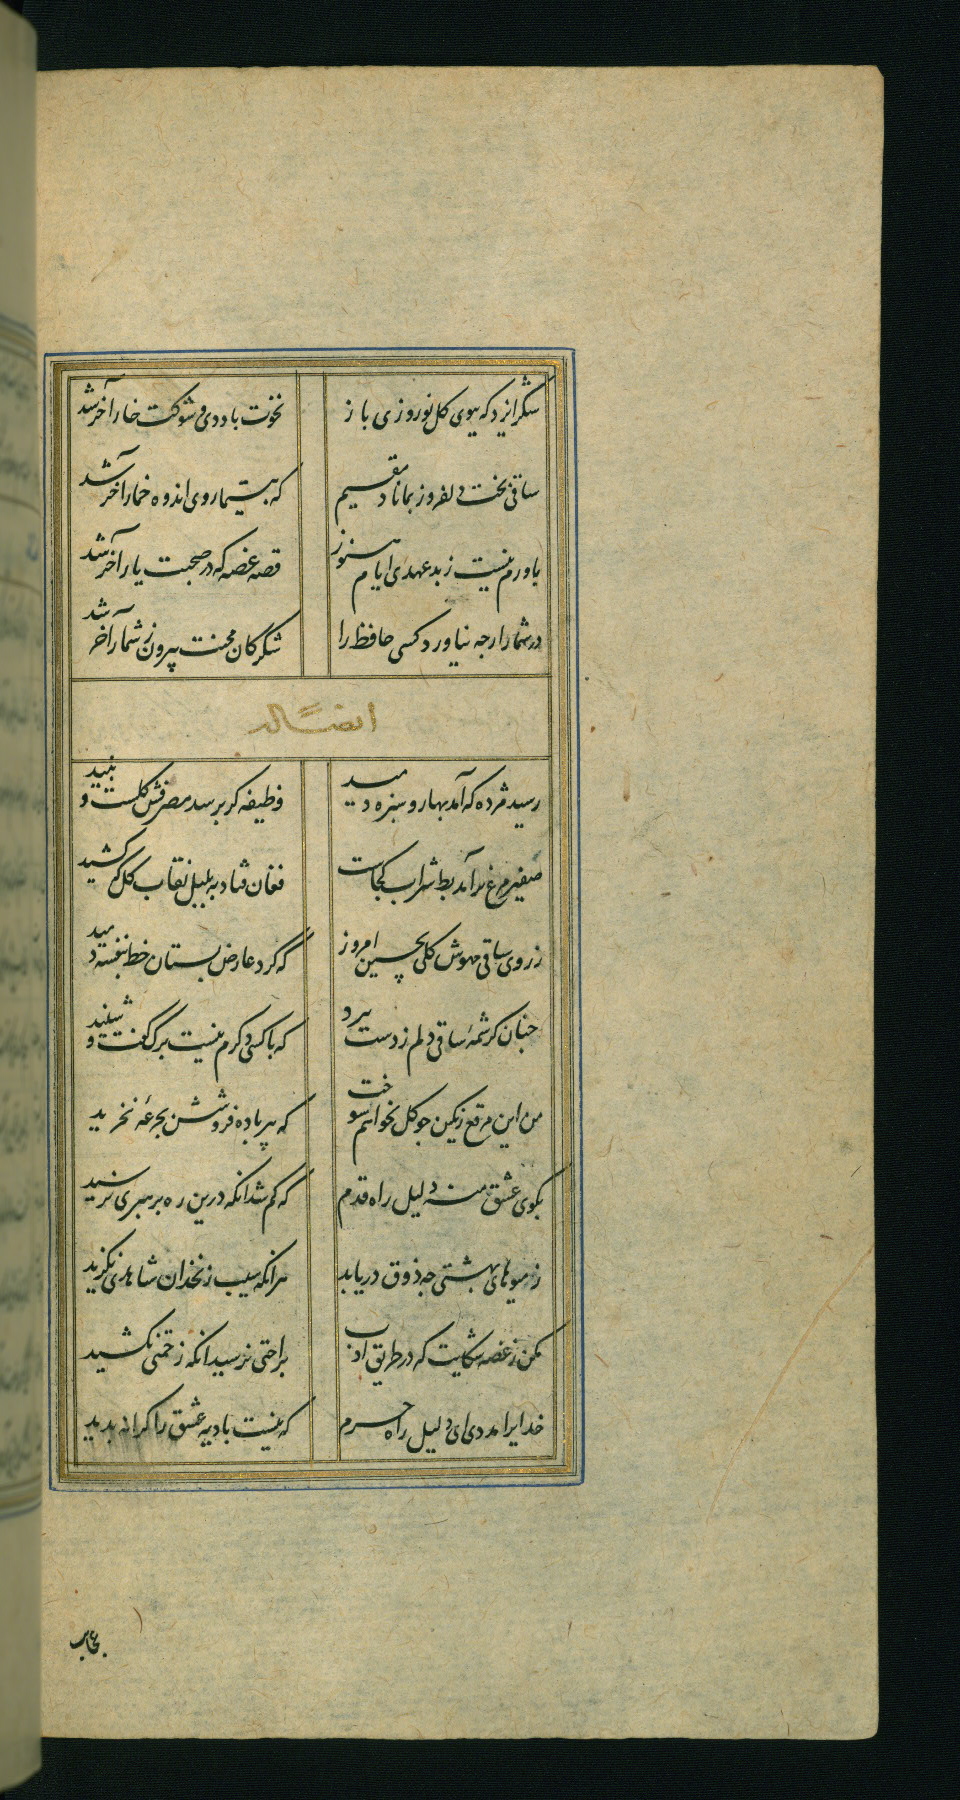 شکر ایزد که ببوی گل نوروزی باز نخوت باد دی و شوکت خار آخر شد
ساقی بخت دلفروز بماناد مقیم که بتیمار وی اندوه خمار آخر شد
باورم نیست ز بد عهدی ایام هنوز قصه غصه که در صحبت یار آخر شد
در شمار ارچه نیاورد کسی حافظ را شکر کان محنت بیرون ز شمار آخر شد
ایضاً له
رسید مژده که آمد بهار و سبزه دمید وظیفه کر برسد مصرفش گلست و نبید
صفیر مرغ برآمد بط شراب کجاست فغان فتاد به بلبل نقاب گل که کشید
ز روی ساقی مهوش گلی بچین امروز که گرد عارض بستان خط بنفشه دمید
چنان کرشمه ساقی دلم ز دست ببرد که با کسی دگرم نیست برگ گفت و شنید
من این مرقع رنگین چو گل نخواهم سوخت که پیر باده فروشش بجرعه نخرید
بکوی عشق منه دلیل راه قدم که گم شد انکه درین ره برهبری نرسید
ز میوهای بهشتی چه ذوق دریابد هر انکه سیب زنخدان شاهدی نگزید
مکن ز غصه شکایت که در طریق ادب براحتی نرسید انکه زحمتی نکشید
خدایرا مددی ای دلیل راه حرم که نیست بادیه عشق را کرانه بدید